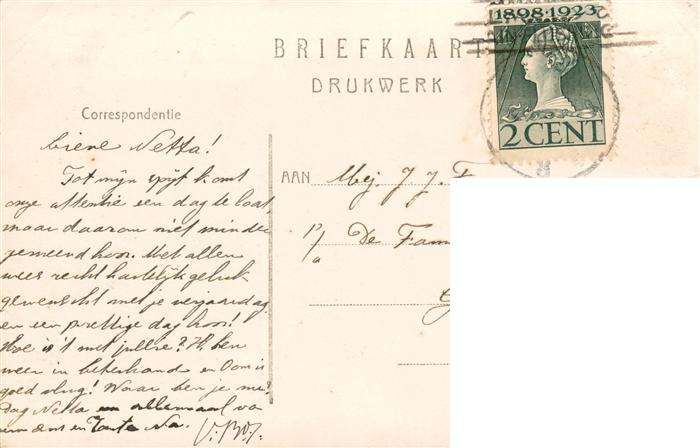 1898-1923
BRIEFKAART
DRUKWERK
2 CENT
Correspondentie
Lieve Netta!
Tot mijn spijt komt
onze attentie een dag te laat,
maar daarom niet minder
gemeend hoor. Met allen
wees recht hartelijk geluk
gewenscht met je verjaardag
en een prettige dag hoor!
Hoe is 't met jullie? Ik ben
weer in beterhand en Oom is
goed vlug! Waar ben je nu?
Dag Netta en allemaal va
en Tante Na.
AAN Mej. J J. F
p/a De Fam